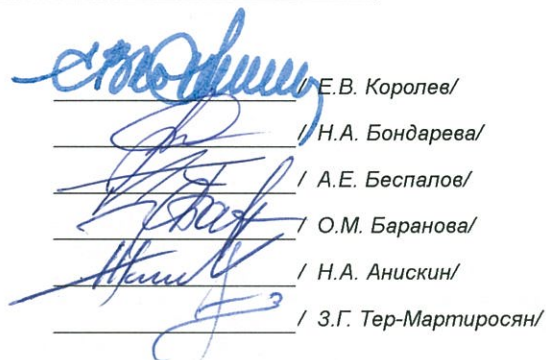 / Е.В. Королев/
/ Н.А. Бондарева/
/ А.Е. Беспалов/
/ О.М. Баранова/
/ Н.А. Анискин/
/ З.Г. Тер-Мартиросян/